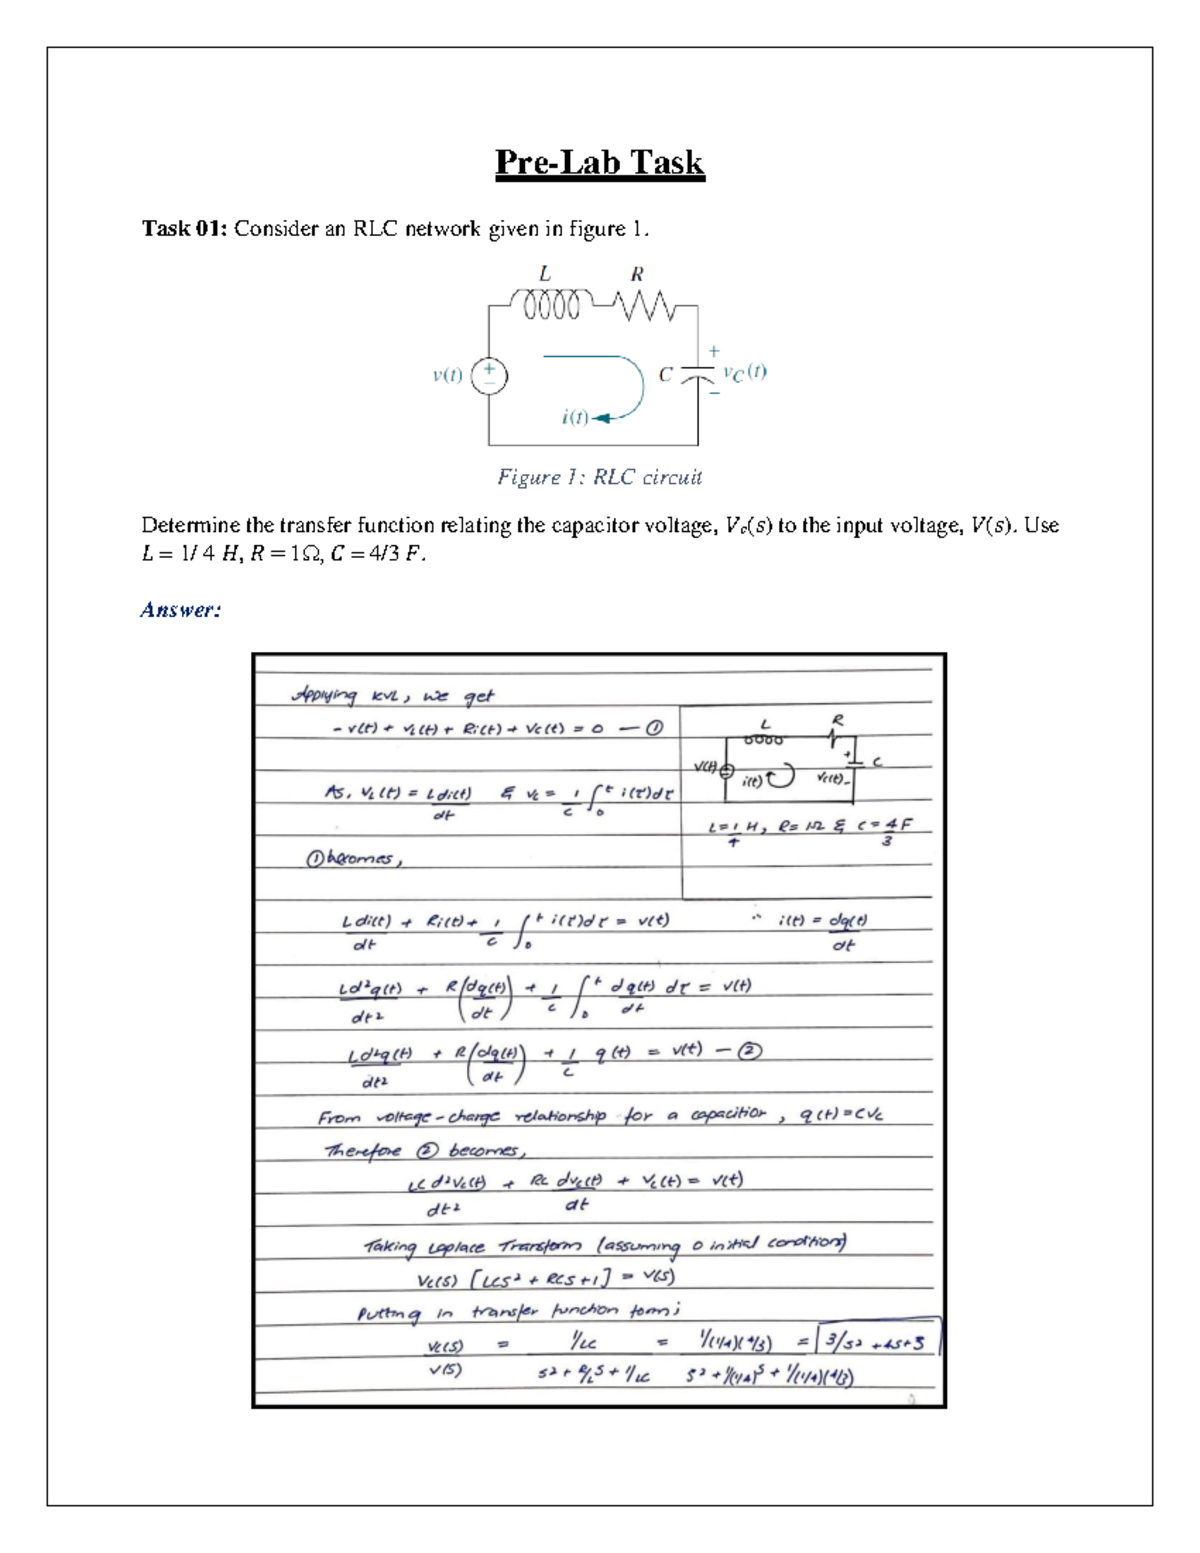 Pre-Lab Task
Task 01: Consider an RLC network given in figure 1.
L R
v(t) + − C + vC(t) −
i(t)
Figure 1: RLC circuit
Determine the transfer function relating the capacitor voltage, Vc(s) to the input voltage, V(s). Use
L = 1/ 4 H, R = 1Ω, C = 4/3 F.
Answer:
Applying KVL, we get
- v(t) + vL(t) + Ri(t) + Vc(t) = 0 — ①
L R
V(t) i(t) + Vc(t) - C
As, VL(t) = L di(t)/dt & vc = 1/C ∫₀ᵗ i(τ)dτ
L = 1/4 H, R = 1Ω & C = 4/3 F
① becomes,
L di(t)/dt + Ri(t) + 1/C ∫₀ᵗ i(τ)dτ = v(t) ∵ i(t) = dq(t)/dt
L d²q(t)/dt² + R (dq(t)/dt) + 1/C ∫₀ᵗ dq(t)/dt dτ = v(t)
L d²q(t)/dt² + R (dq(t)/dt) + 1/C q(t) = v(t) — ②
From voltage-charge relationship for a capacitior, q(t) = CVc
Therefore ② becomes,
LC d²Vc(t)/dt² + RC dvc(t)/dt + Vc(t) = v(t)
Taking Laplace Transform (assuming 0 initial condition)
Vc(s) [LCs² + RCs + 1] = V(s)
Putting in transfer function form;
Vc(s)/V(s) = 1/LC / s² + R/L s + 1/LC = 1/(1/4)(4/3) / s² + 1/(1/4) s + 1/(1/4)(4/3) = 3/s² + 4s + 3